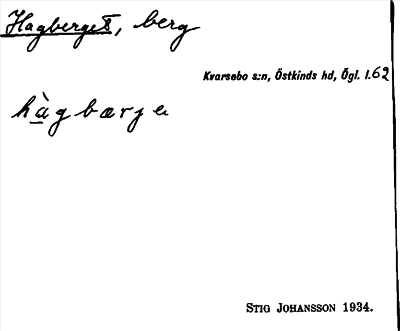 Hagberget, berg
Kvarsebo s:n, Östkinds hd, Ögl. l.62
hàgbærjə
STIG JOHANSSON 1934.